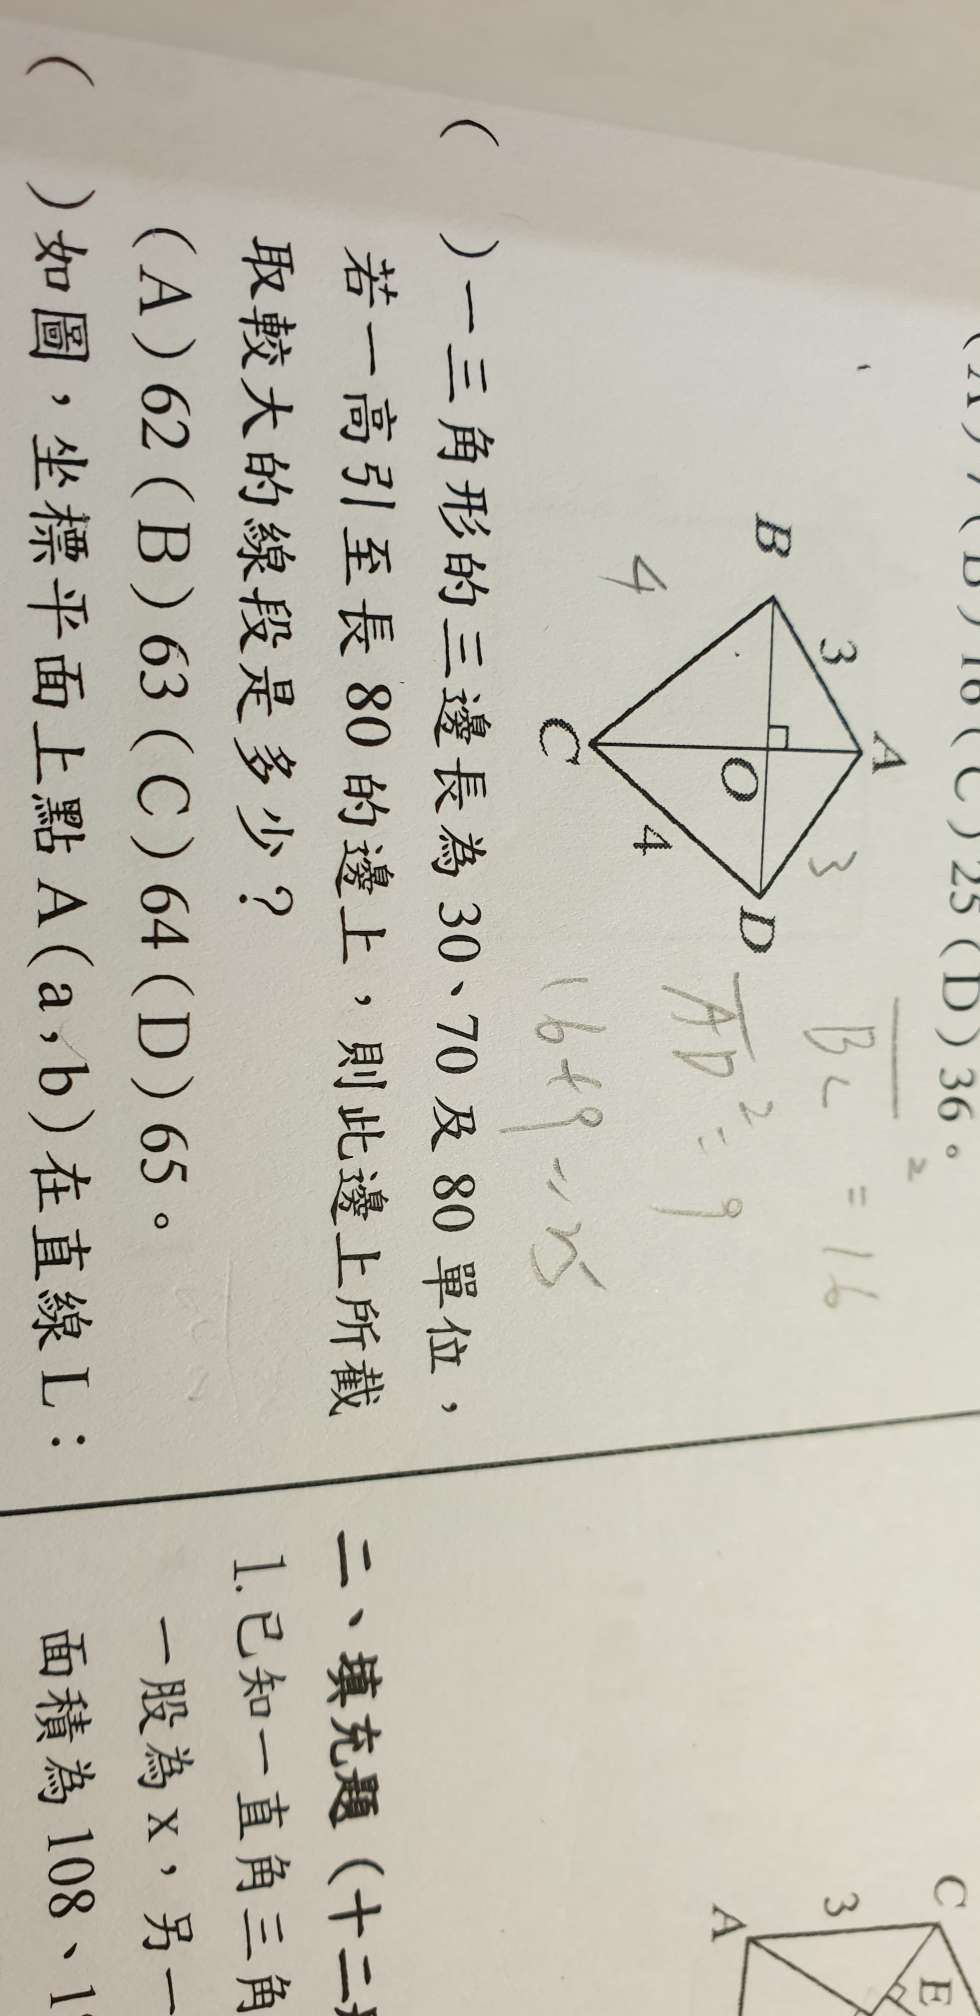 (A)7(B)16(C)25(D)36。
A
3
3
B
O
D
4
4
C
BC² = 16
AD² = 9
16+9=25
( )一三角形的三邊長為30、70及80單位，
若一高引至長80的邊上，則此邊上所截
取較大的線段是多少？
(A)62(B)63(C)64(D)65。
( )如圖，坐標平面上點A(a，b)在直線L：
C
3
E
A
二、填充題(十二
1.已知一直角三角
一股為x，另一
面積為108、1